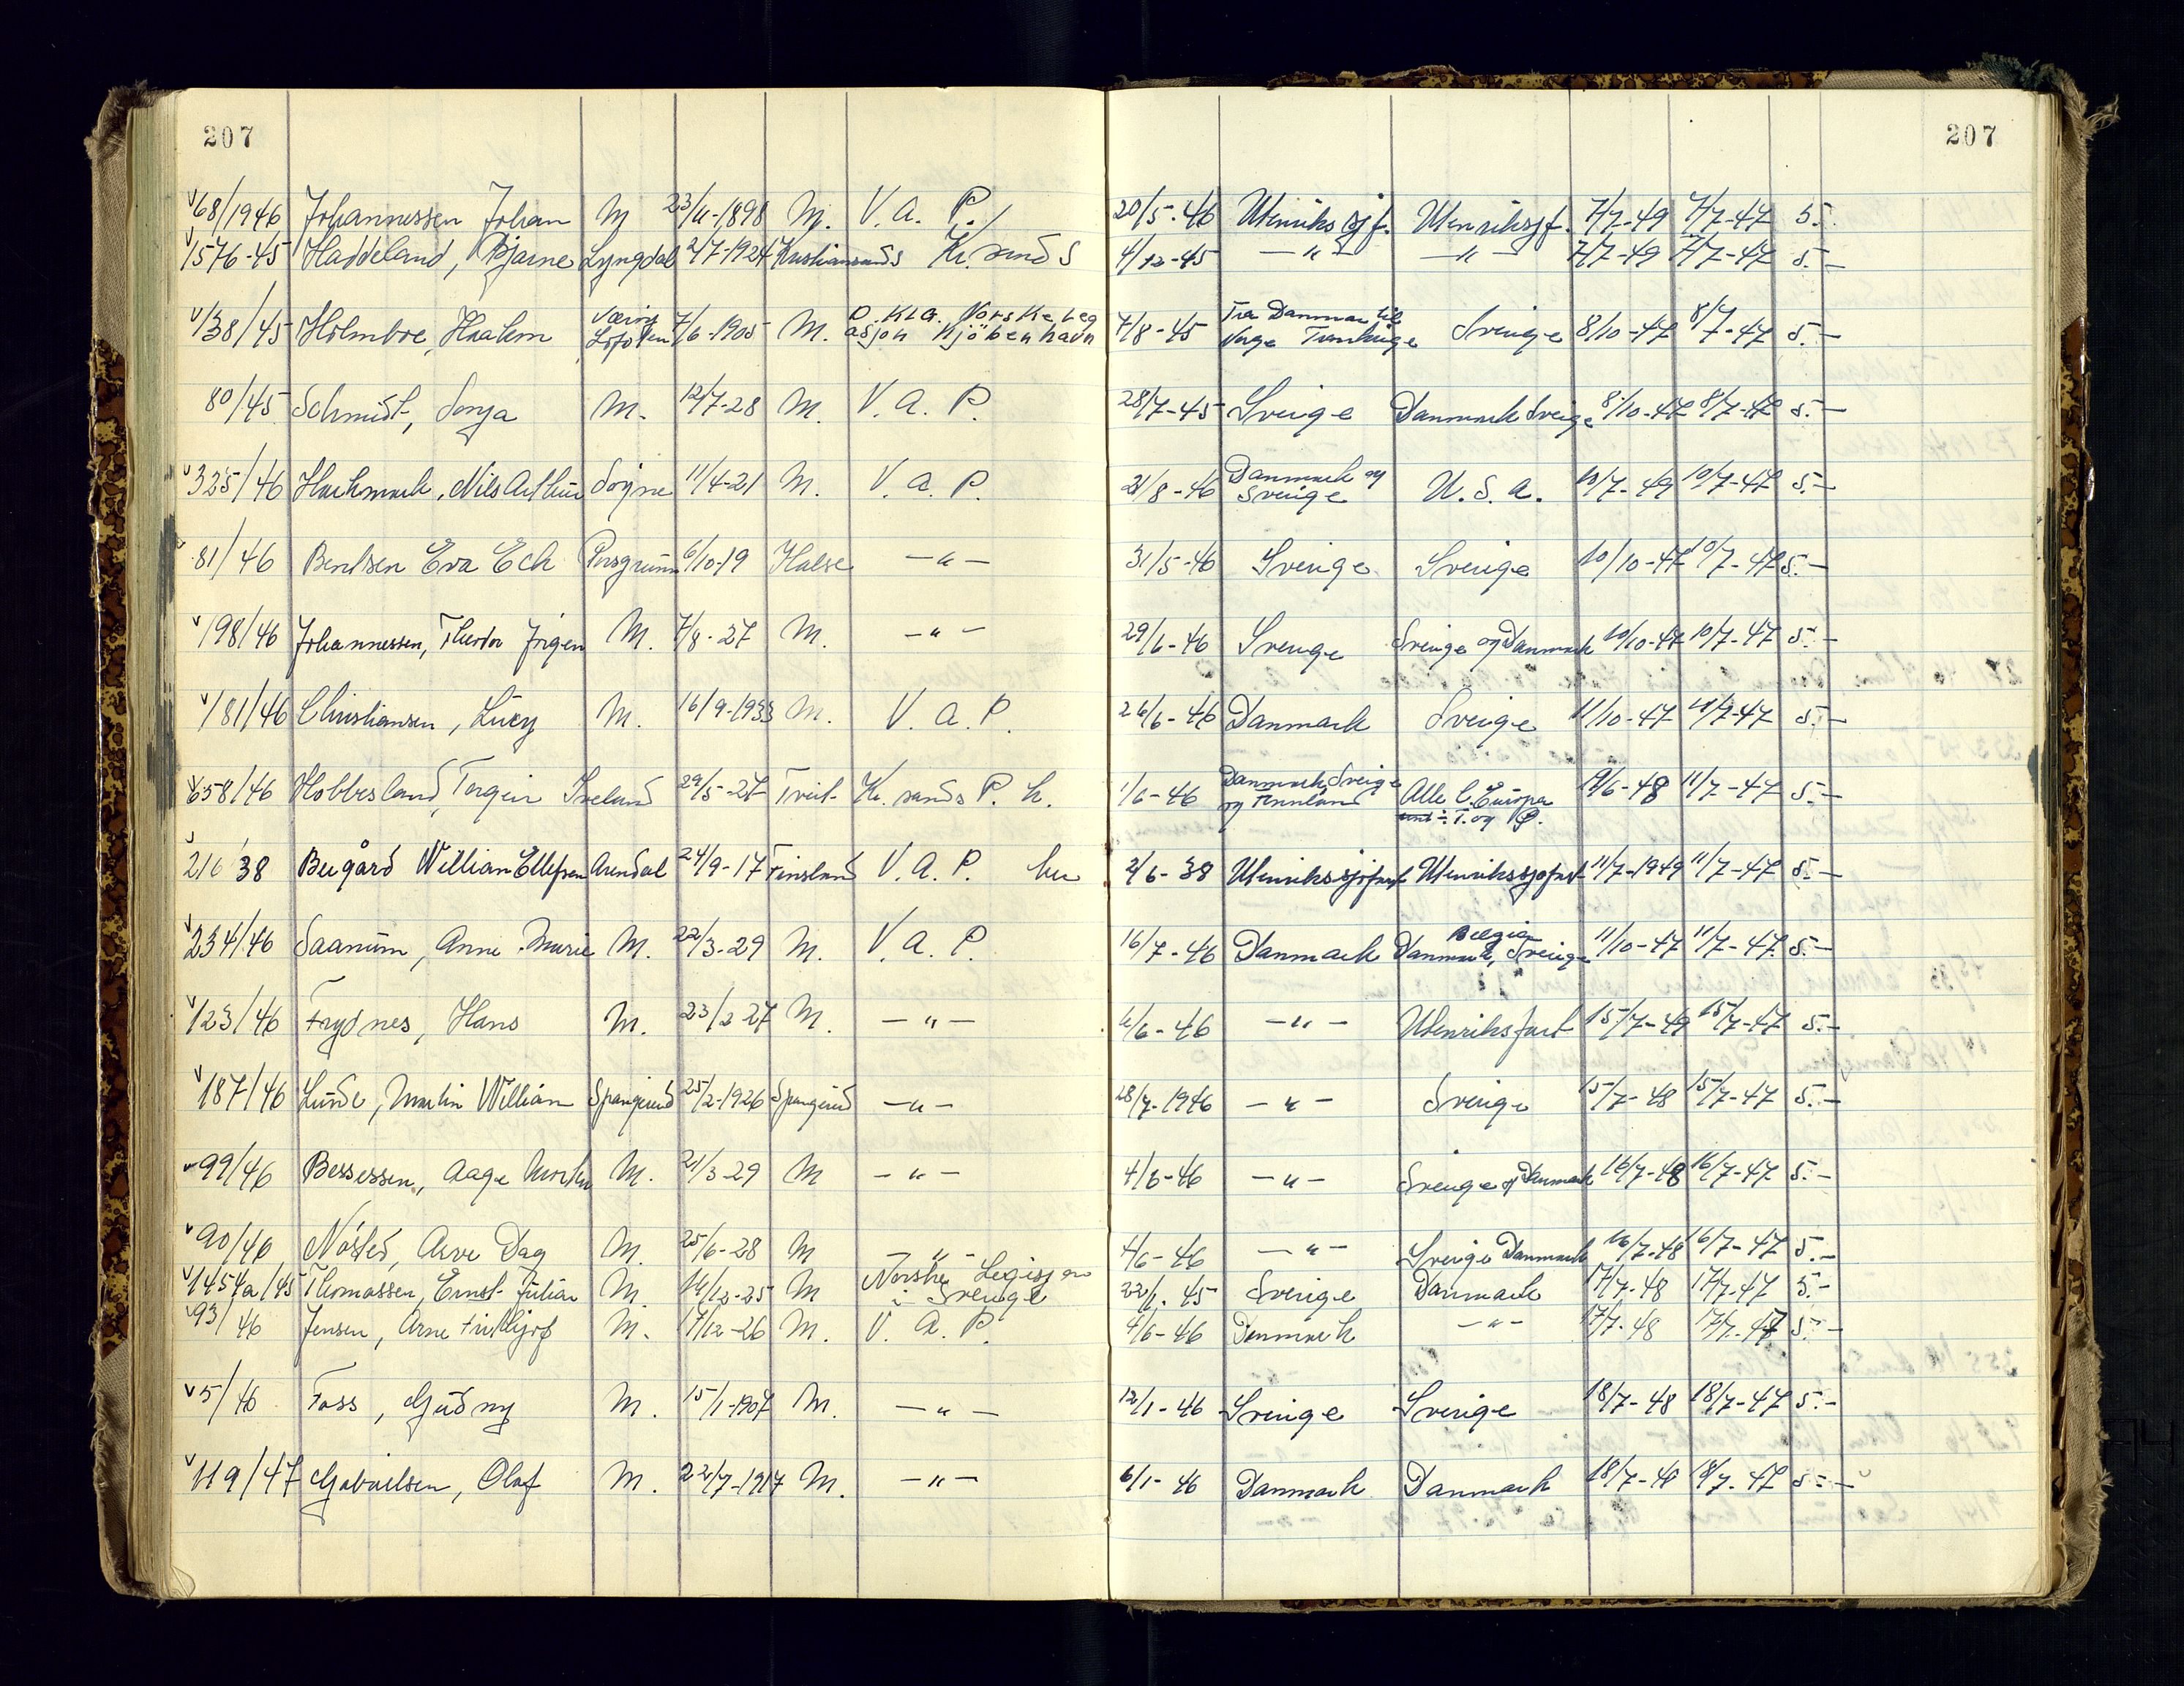 207 207
68/1946 Johannessen Johan M 23/11-1898 M. V. A. P. 20/5-46 Utenriks sjf. Utenrikssjf. 7/7-49 7/7-47 5.-
1576-45 Haddeland, Bjarne Lyngdal 2/7-1924 Kristiansands Kr. sands 4/12-45 -"- -"- 7/7-49 7/7-47 5.-
138/45 Holmboe, Haakem Lofoten 7/6-1905 M. Norske Leg
asjon Kjöbenhavn 7/8-45 Fra Danmark til
Norge Sverige 8/10-47 8/7-47 5.-
80/45 Schmidt, Sonja M. 12/7-28 M. V. A. P. 28/7-45 Sverige Danmark Sverige 8/10-47 8/7-47 5.-
325/46 Nils Arthur Søgne 11/4-21 M. V. A. P. 21/8-46 Danmark og
Sverige U. S. A. 10/7-49 10/7-47 5.-
81/46 Bentsen Eva Eck Porsgrunn 6/10-19 Halse -"- 31/5-46 Sverige Sverige 10/10-47 10/7-47 5.-
198/46 Johannessen, Jørgen M. 7/8-27 M. -"- 29/6-46 Sverige Sverige og Danmark 10/10-47 10/7-47 5.-
181/46 Christiansen, Lucy M. 16/9-1933 M. V. A. P. 26/6-46 Danmark Sverige 11/10-47 11/7-47 5.-
658/46 Hobbesland, Torgeir Iveland 29/5-27 Tveit Kr. sands P. k. 1/6-46 Danmark, Sverige
og Finnland Alle l. Europa
T. og P. 11/6-48 11/7-47 5.-
216 38 William Ellefsen Arendal 24/9-17 Finsland V. A. P. 2/6-38 Utenrikssjøfart Utenrikssjøfart 11/7-1949 11/7-47 5.-
234/46 Saanum, Anne Marie M. 22/3-29 M. V. A. P. 16/7-46 Danmark Belgia
Danmark, Sverige 11/10-47 11/7-47 5.-
123/46 Frydnes, Hans M. 23/2-27 M. -"- -"- Utenriksfart 15/7-49 15/7-47 5.-
187/46 Lunde, Martin William Spangereid 25/2-1926 Spangereid -"- 28/7-1946 -"- Sverige 15/7-48 15/7-47 5.-
99/46 Bessessen, Aage Morten M. 21/3-29 M -"- 4/6-46 -"- Sverige og Danmark 16/7-48 16/7-47 5.-
90/46 Nøsted, Arve Dag M. 25/6-28 M -"- 4/6-46 -"- Sverige Danmark 16/7-48 16/7-47 5.-
1454a/45 Thomassen, Ernst Julian M. 16/12-25 M Norske Legisjon
i Sverige 45 Sverige Danmark 17/7-48 17/7-47 5.-
93/46 Jensen, Arne Fridtjof M. 17/12-26 M. V. A. P. 4/6-46 Danmark -"- 17/7-48 17/7-47 5.-
5/46 Foss, Gudny M. 15/1-1907 M. -"- 12/1-46 Sverige Sverige 18/7-48 18/7-47 5.-
119/47 Gabrielsen, Olaf M. 22/7-1917 M. -"- 6/1-46 Danmark Danmark 18/7-48 18/7-47 5.-